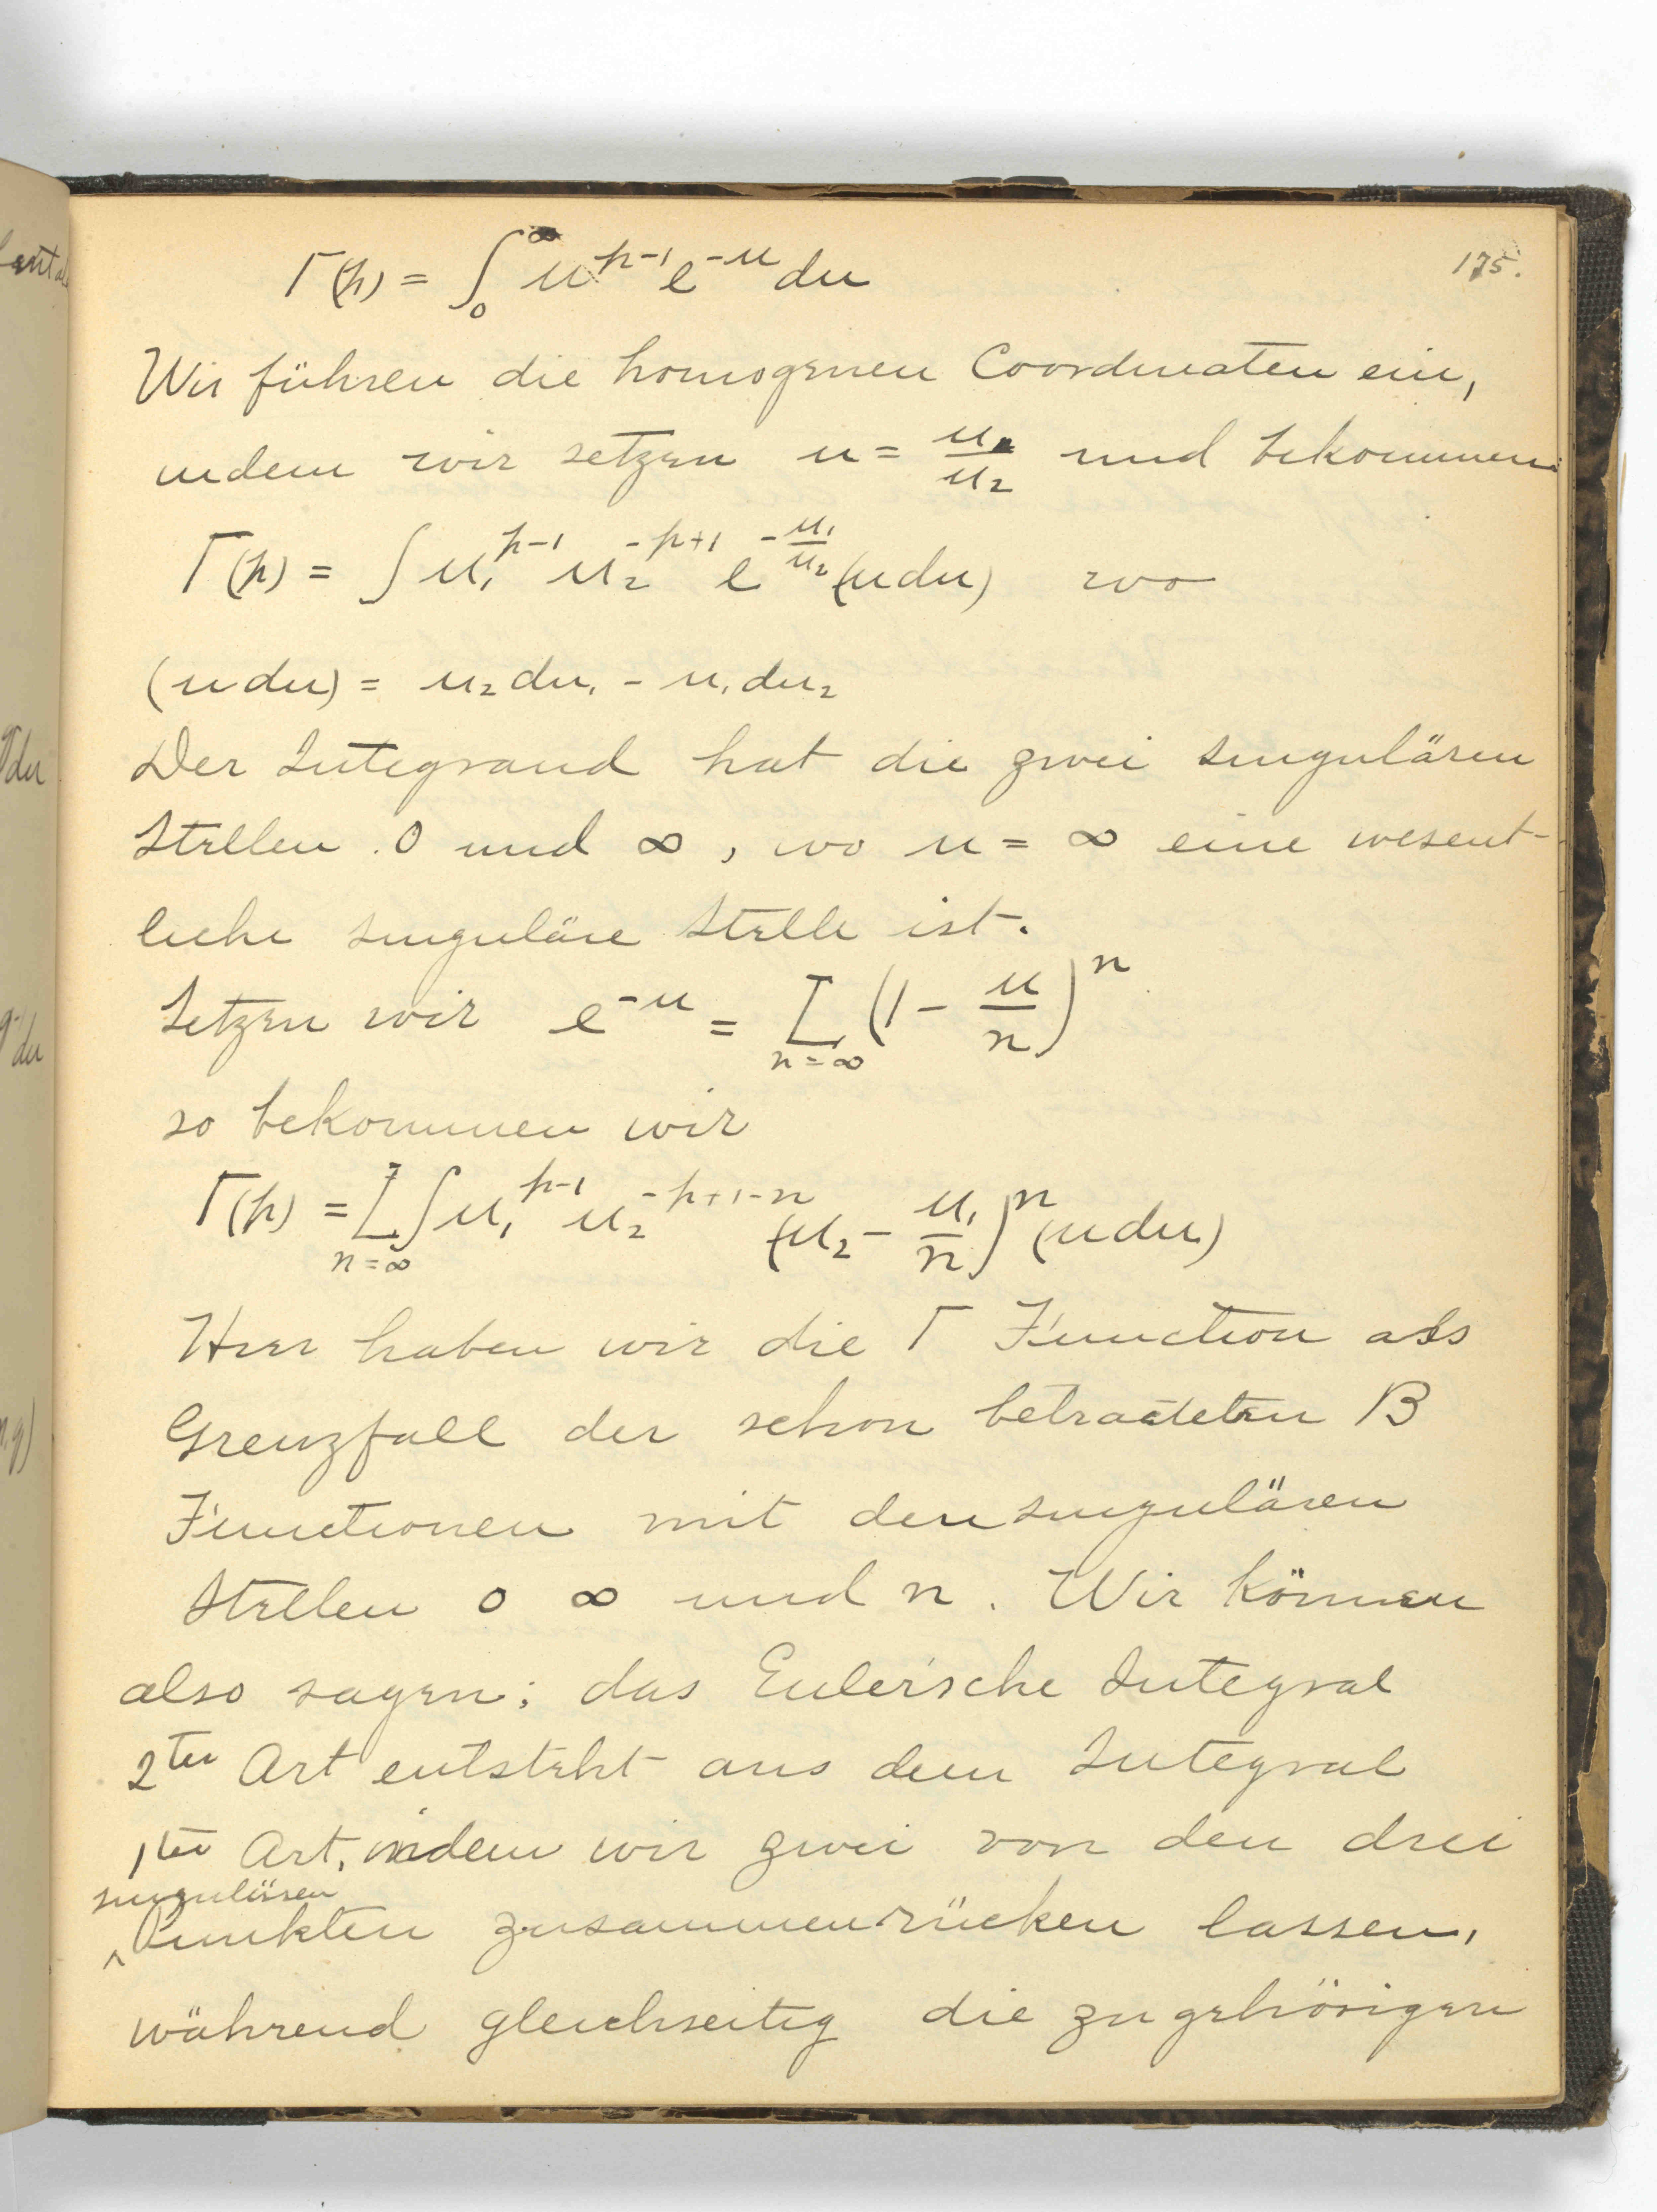 175.
Γ(p) = ∫₀^∞ u^{p-1} e^{-u} du
Wir führen die homogenen Coordinaten ein,
indem wir setzen u = u₁/u₂ und bekommen:
Γ(p) = ∫ u₁^{p-1} u₂^{-p+1} e^{-u₁/u₂} (u du) wo
(u du) = u₂ du₁ - u₁ du₂
Der Integrand hat die zwei singulären
Stellen 0 und ∞, wo u = ∞ eine wesent-
liche singuläre Stelle ist.
Setzen wir e^{-u} = L_{n=∞} (1 - u/n)^n
so bekommen wir
Γ(p) = L_{n=∞} ∫ u₁^{p-1} u₂^{-p+1-n} (u₂ - u₁/n)^n (u du)
Hier haben wir die Γ Function als
Grenzfall der schon betrachteten B
Functionen mit den singulären
Stellen 0 ∞ und n. Wir können
also sagen; das Euler'sche Integral
2ter Art entsteht aus dem Integral
1ter Art, indem wir zwei von den drei
singulären
Punkten zusammenrücken lassen,
während gleichseitig die zugehörigen
du
du